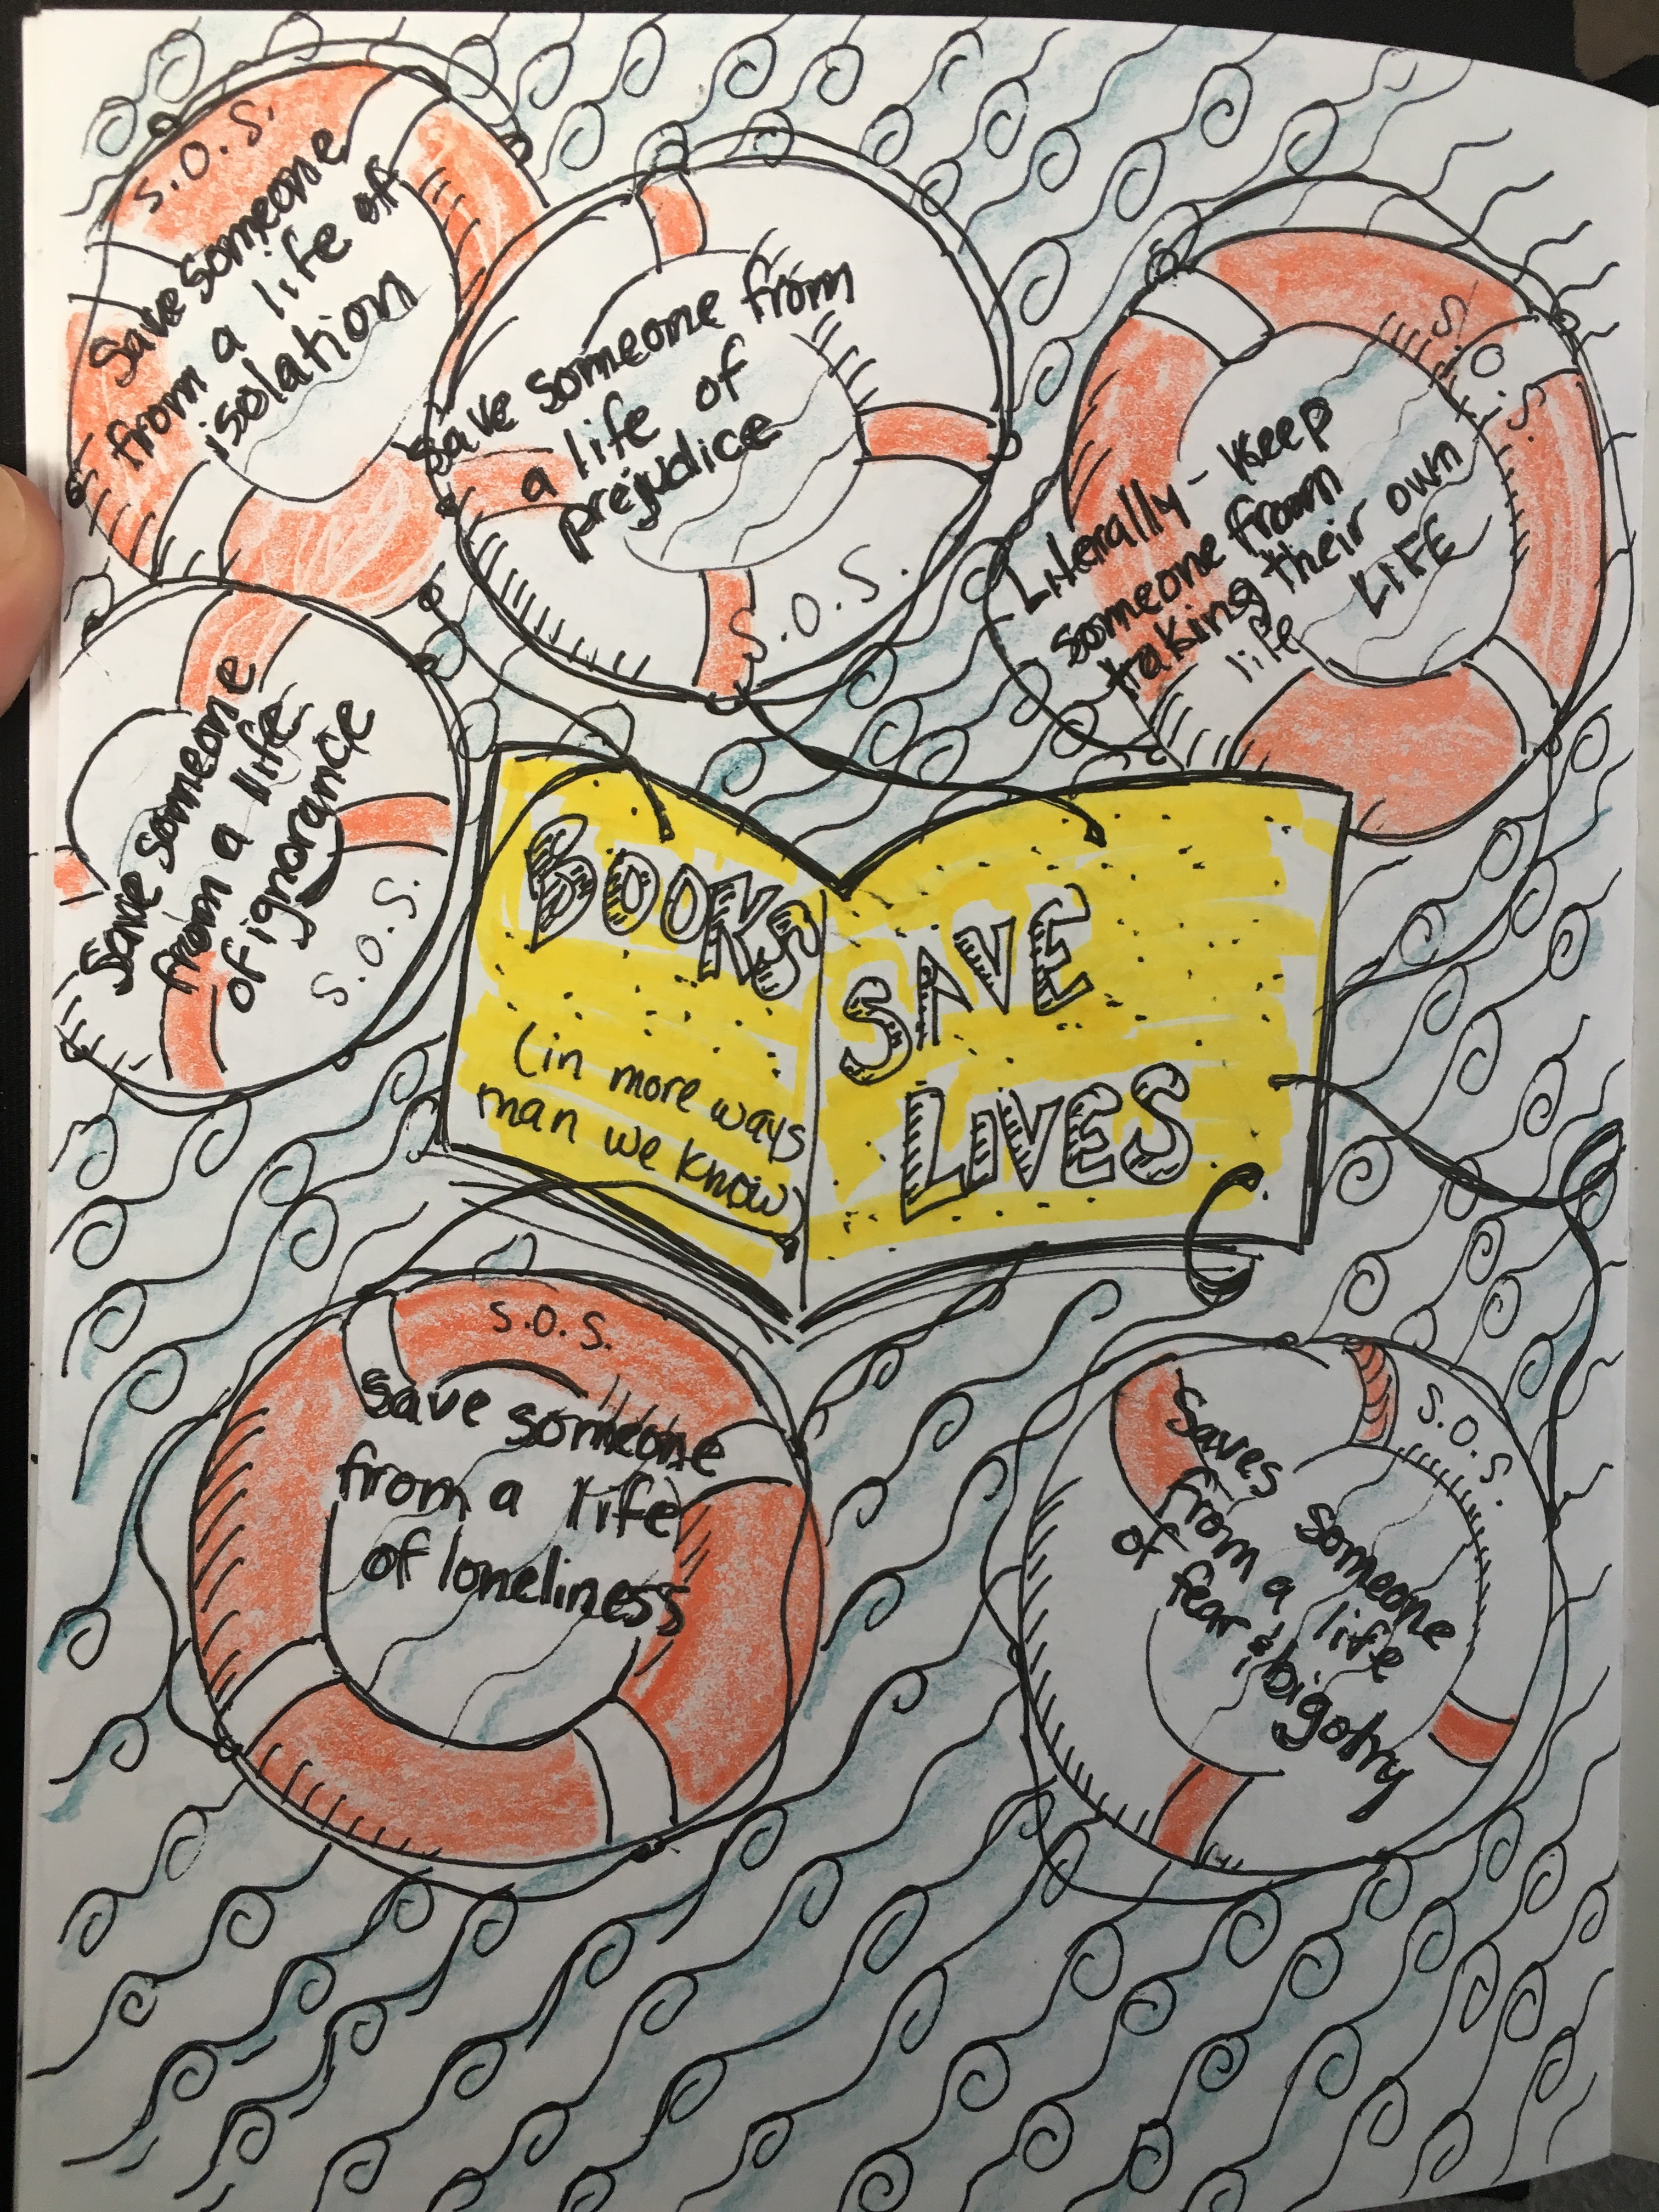 S.O.S.
Save someone
from a life of
isolation
Save someone from
a life of
prejudice
S.O.S.
S.O.S.
Literally - Keep
someone from
taking their own
life LIFE
Save someone
from a life
of ignorance
S.O.S.
BOOKS
(in more ways
than we know)
SAVE
LIVES
S.O.S.
Save someone
from a life
of loneliness
S.O.S.
Saves someone
from a life
of fear & bigotry